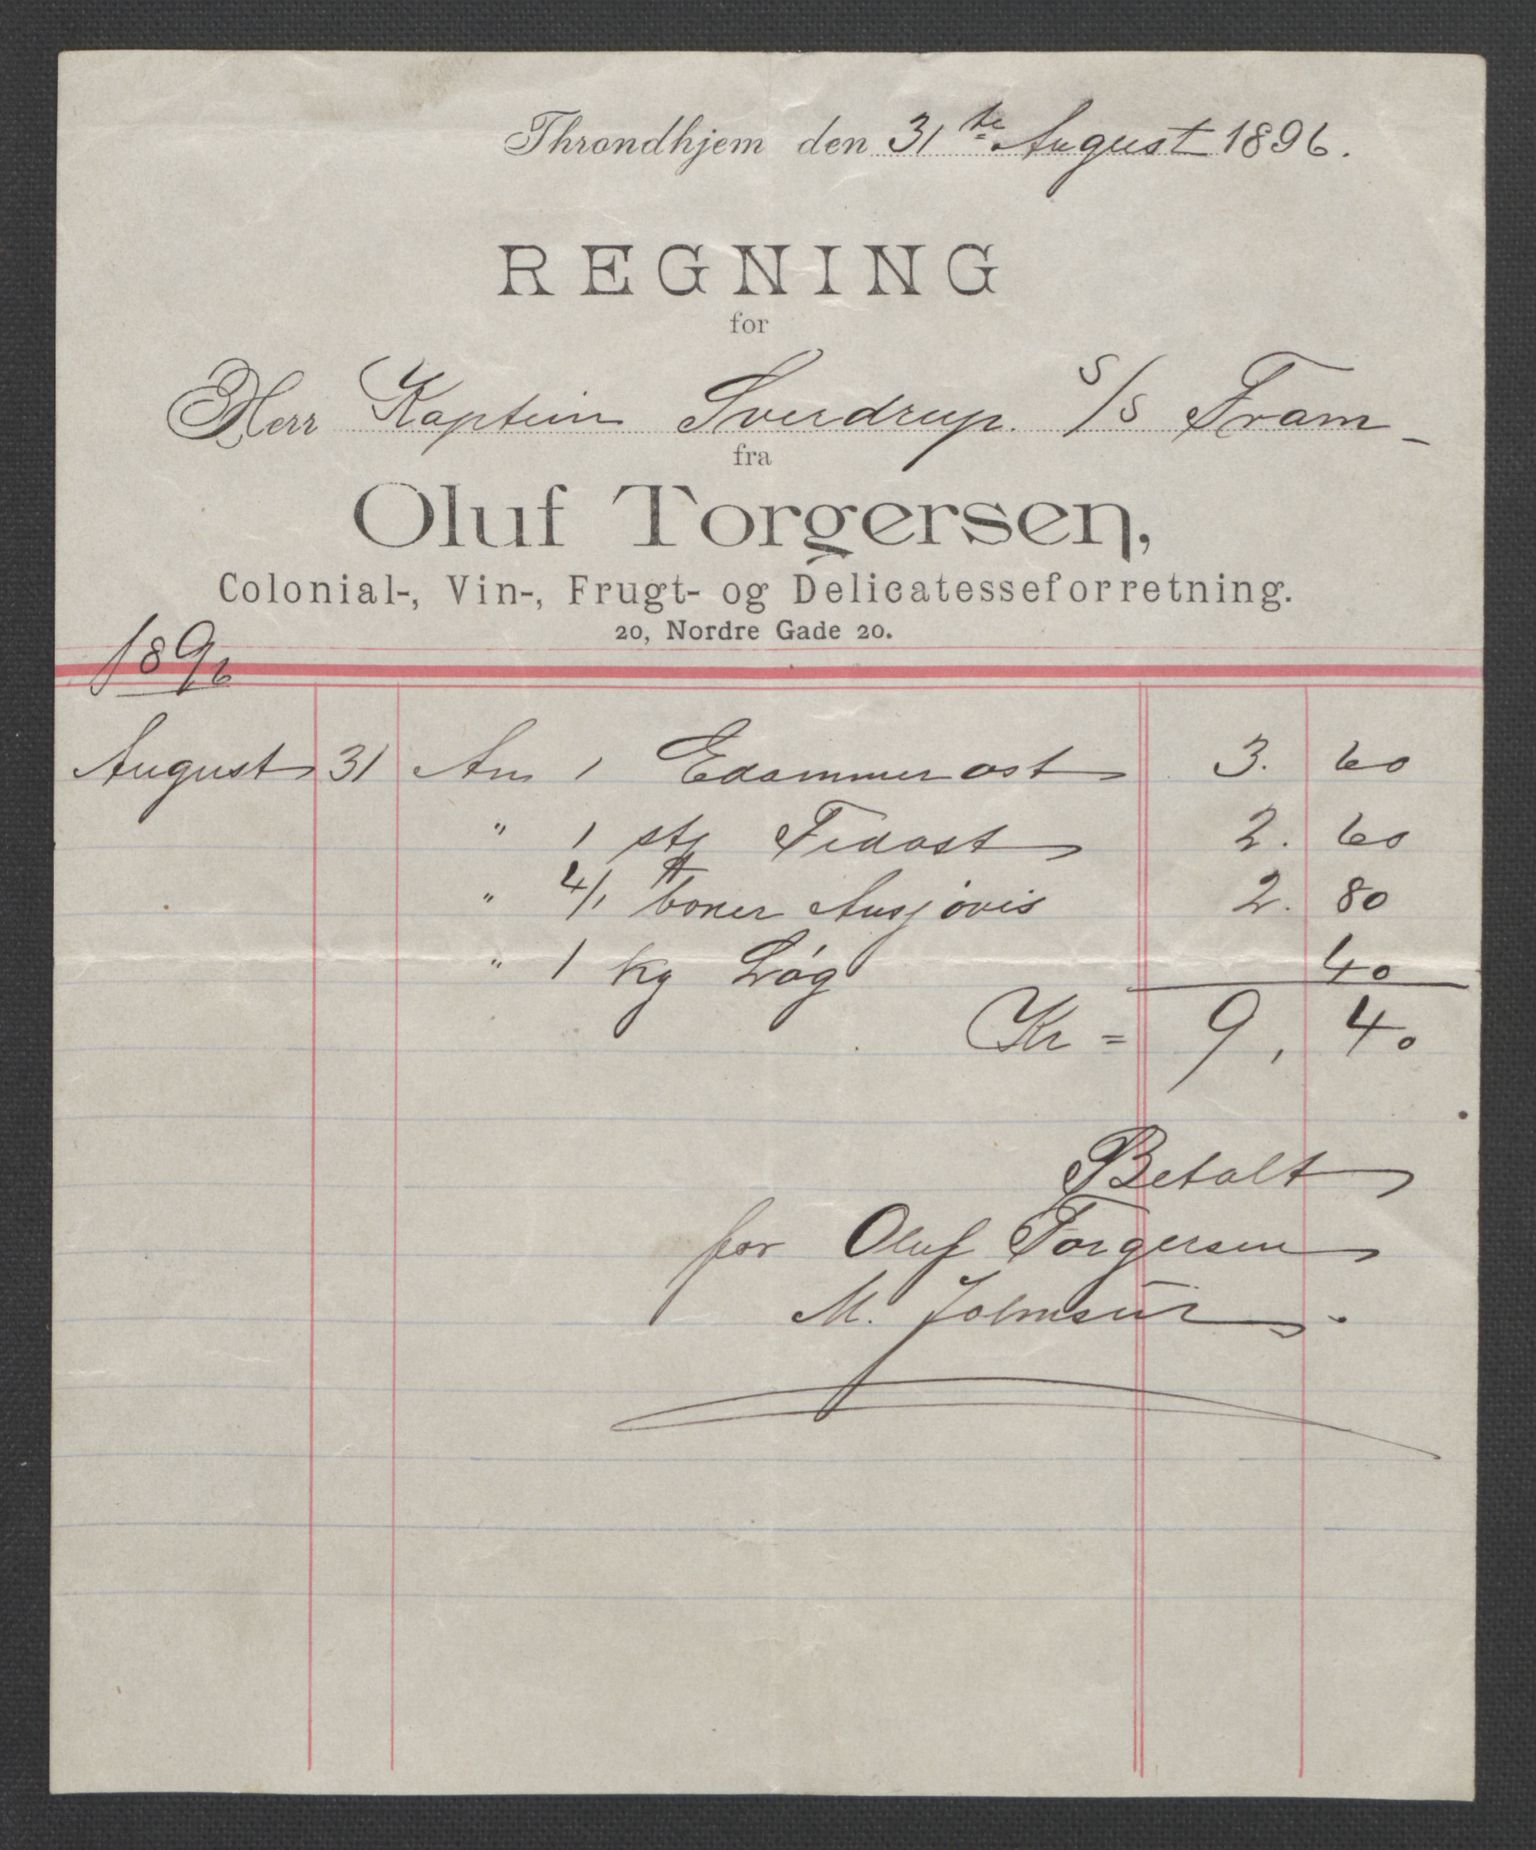 Throndhjem den 31te August 1896.
REGNING
for
Herr Kaptein Sverdrup. S/S Fram
fra
Oluf Torgersen,
Colonial-, Vin-, Frugt- og Delicatesseforretning.
20, Nordre Gade 20.
1896
August 31 An 1 Edammerost 3. 60
" 1 stk Fedost 2. 60
" 4/1 boxer Ansjovis 2. 80
" 1 kg Løg 40
Kr = 9, 40
Betalt
for Oluf Torgersen
M. Johnsen.